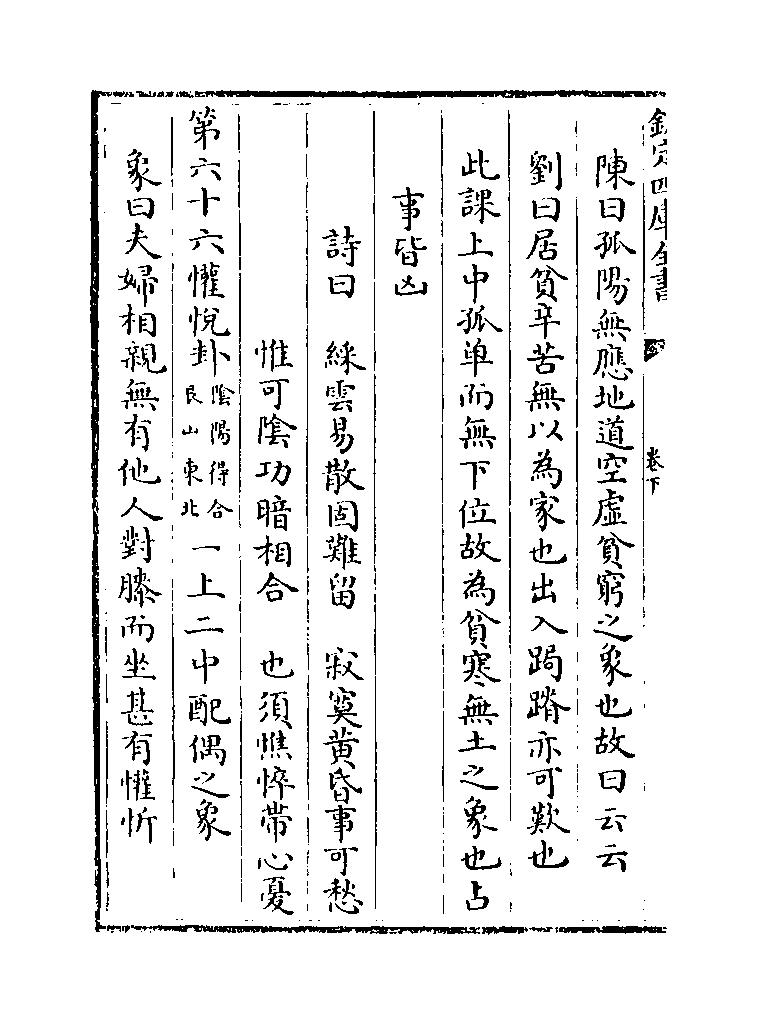 欽定四庫全書
卷下
陳曰孤陽無應地道空虛貧窮之象也故曰云云
劉曰居貧辛苦無以為家也出入跼蹐亦可歎也
此課上中孤單而無下位故為貧寒無土之象也占
事皆凶
詩曰　綵雲易散固難留　寂寞黄昏事可愁
惟可陰功暗相合　也須憔悴帶心憂
第六十六懽悅卦陰陽得合艮山東北一上二中配偶之象
象曰夫婦相親無有他人對膝而坐甚有懽忻